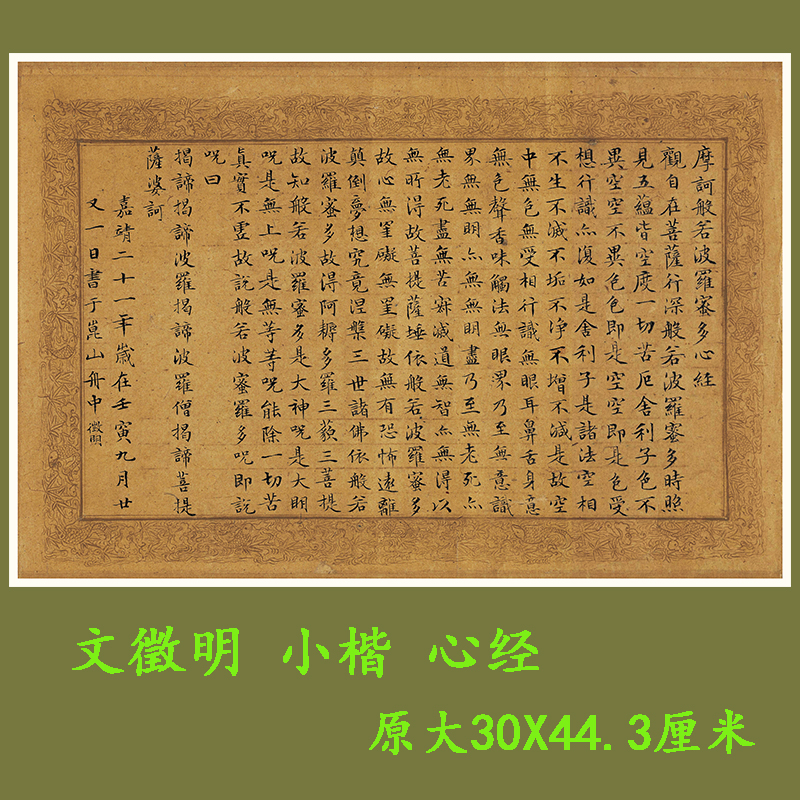 摩訶般若波羅蜜多心經
觀自在菩薩行深般若波羅蜜多時照
見五蘊皆空度一切苦厄舍利子色不
異空空不異色色即是空空即是色受
想行識亦復如是舍利子是諸法空相
不生不滅不垢不淨不增不減是故空
中無色無受相行識無眼耳鼻舌身意
無色聲香味觸法無眼界乃至無意識
界無無明亦無無明盡乃至無老死亦
無老死盡無苦寂滅道無智亦無得以
無所得故菩提薩埵依般若波羅蜜多
故心無罣礙無罣礙故無有恐怖遠離
顛倒夢想究竟涅槃三世諸佛依般若
波羅蜜多故得阿耨多羅三藐三菩提
故知般若波羅蜜多是大神呪是大明
呪是無上呪是無等等呪能除一切苦
真實不虛故說般若波蜜羅多呪即說
呪曰
揭諦揭諦波羅揭諦波羅僧揭諦菩提
薩婆訶
嘉靖二十一年歲在壬寅九月廿
又一日書于崑山舟中徵明
文徵明 小楷 心经
原大30X44.3厘米